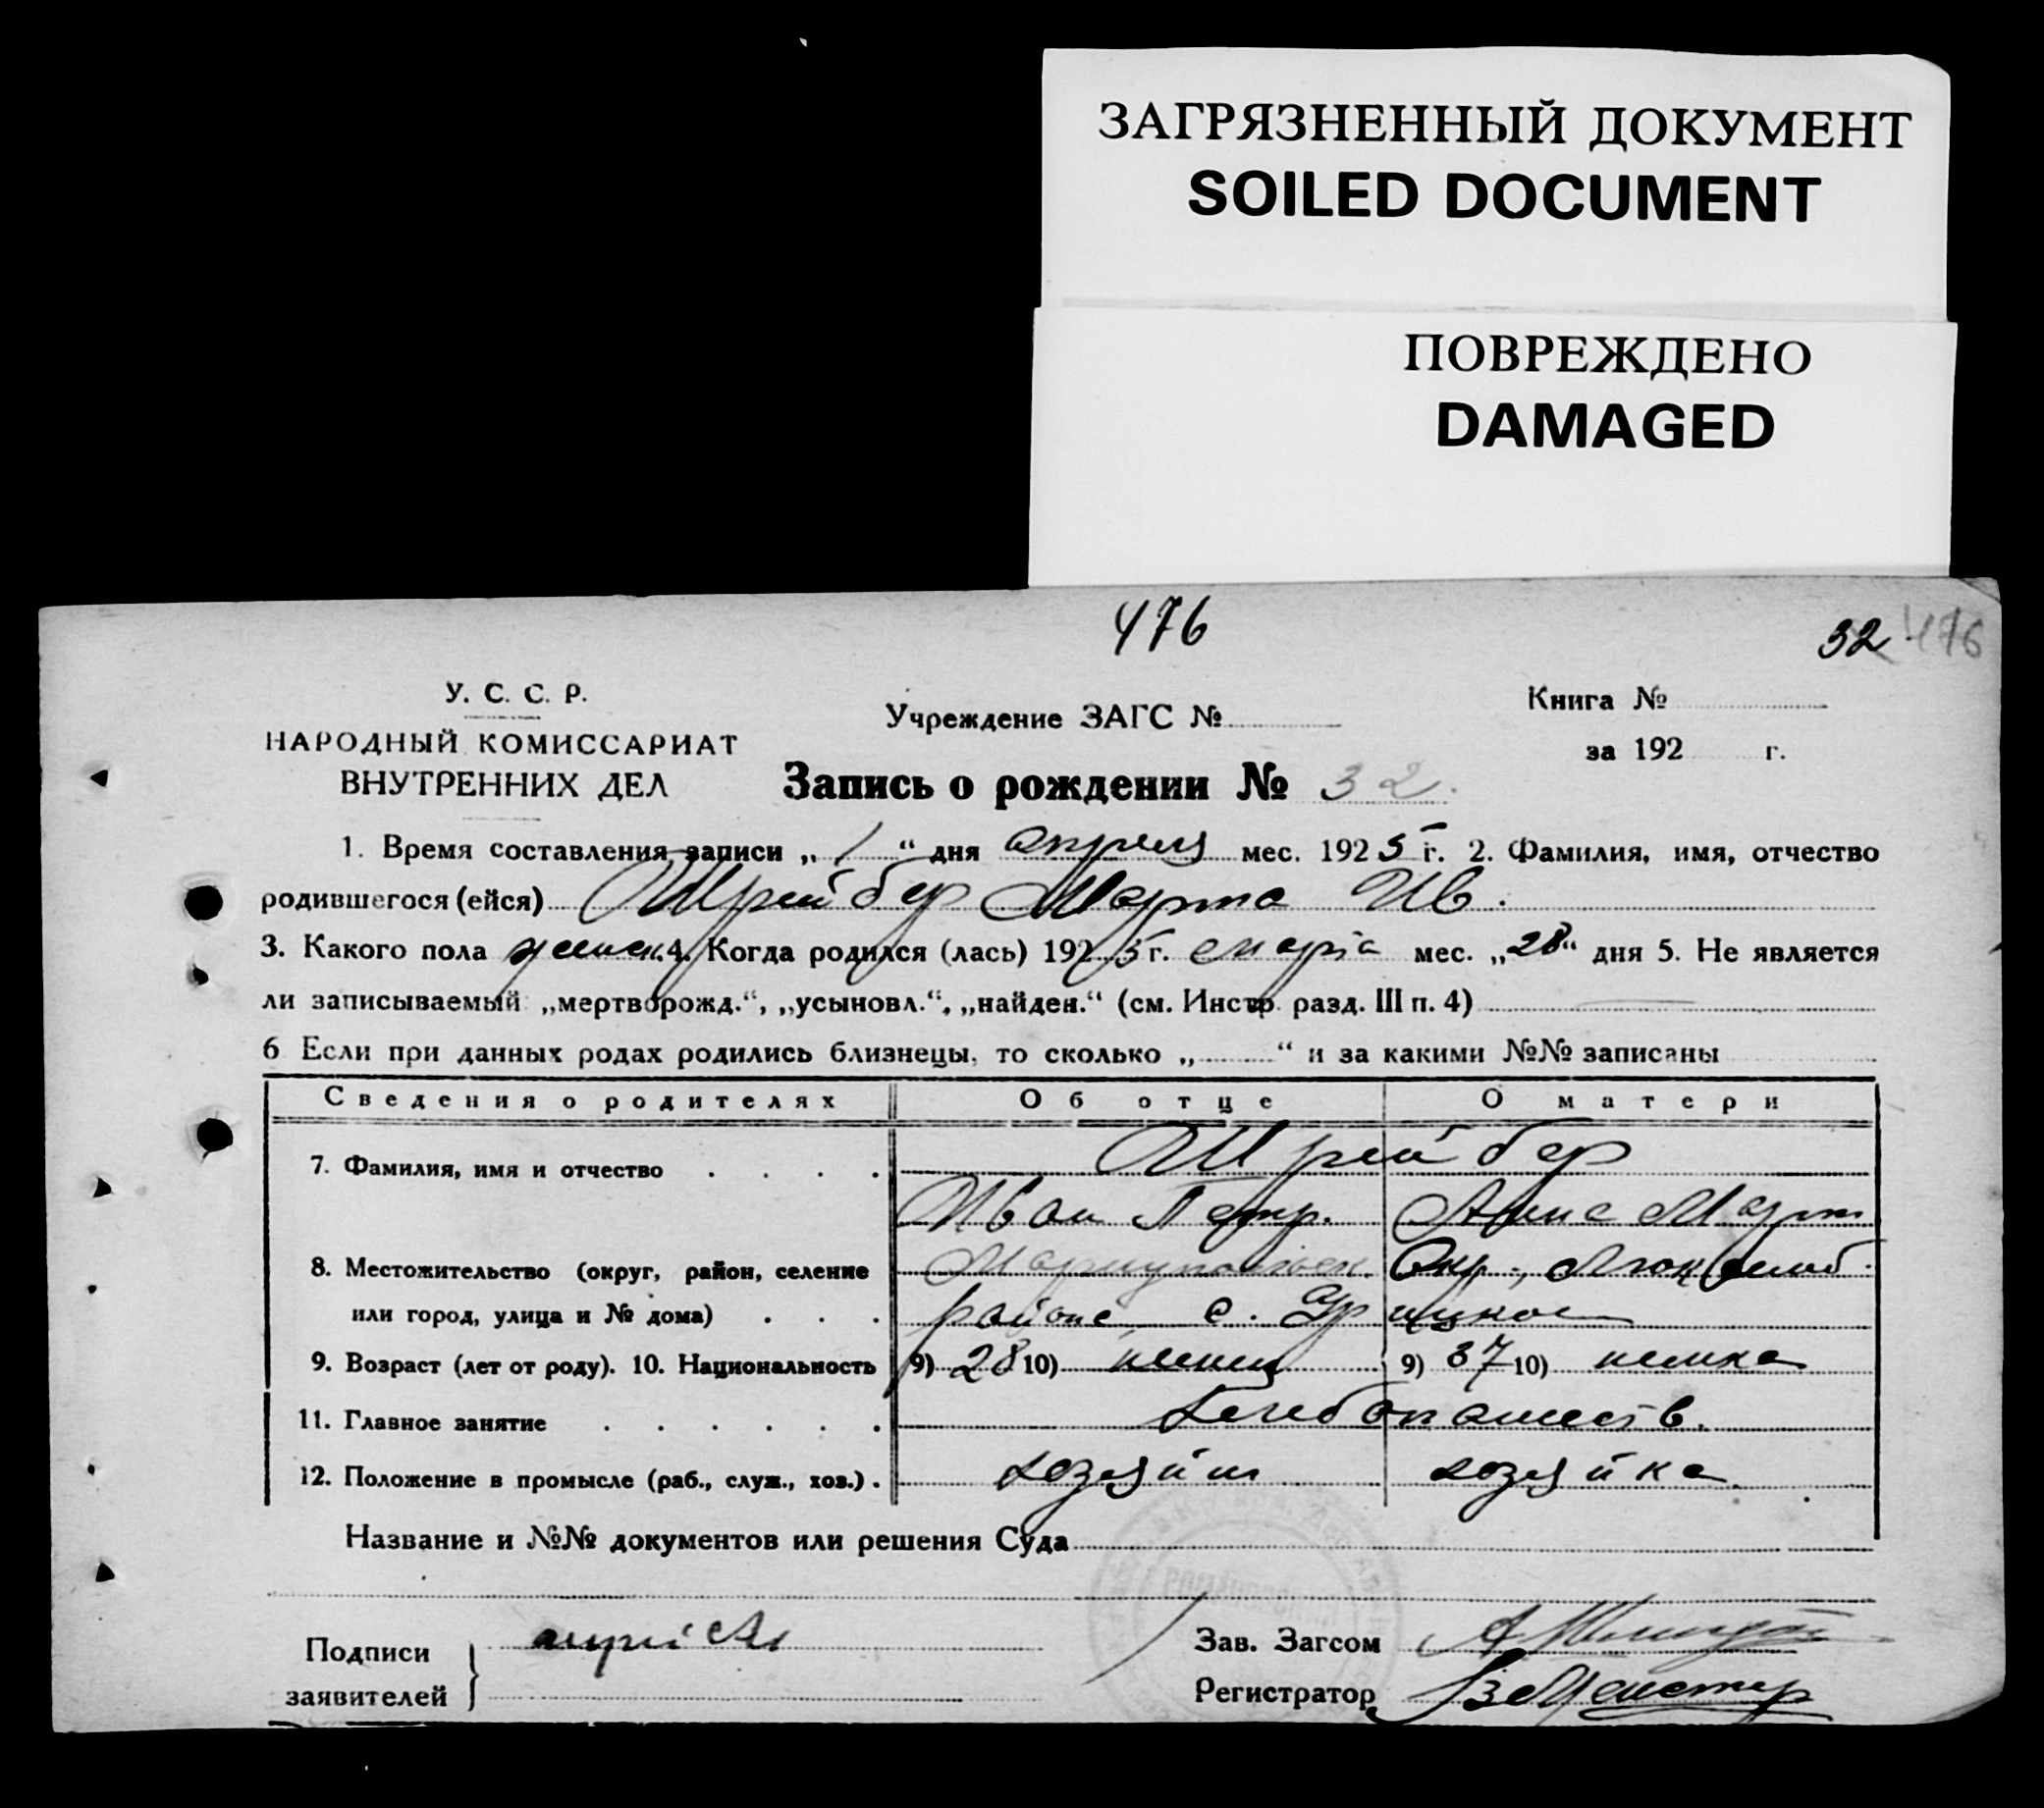 ЗАГРЯЗНЕННЫЙ ДОКУМЕНТ
SOILED DOCUMENT
ПОВРЕЖДЕНО
DAMAGED
476
32 476
У. С. С. Р.
НАРОДНЫЙ КОМИССАРИАТ
ВНУТРЕННИХ ДЕЛ
Учреждение ЗАГС №
Книга №
за 192 г.
Запись о рождении № 32.
1. Время составления записи „ 1 “ дня апреля мес. 1925 г. 2. Фамилия, имя, отчество
родившегося (ейся) Шрейбер Марта Ив.
3. Какого пола женск. 4. Когда родился (лась) 1925 г. марта мес. „28“ дня 5. Не является
ли записываемый „мертворожд.“, „усыновл.“, „найден.“ (см. Инстр. разд. III п. 4)
6 Если при данных родах родились близнецы, то сколько „ “ и за какими №№ записаны
Сведения о родителях Об отце О матери
7. Фамилия, имя и отчество Шрейбер
Иван Петр. Анна Март
8. Местожительство (округ, район, селение Мариупольск. Окр., Люксемб.
или город, улица и № дома) района, с.
9. Возраст (лет от роду). 10. Национальность 9) 28 10) немец 9) 37 10) немка
11. Главное занятие хлебопашеств.
12. Положение в промысле (раб., служ., хоз.) хозяин хозяйка
Название и №№ документов или решения Суда
Подписи
заявителей
Зав. Загсом
Регистратор